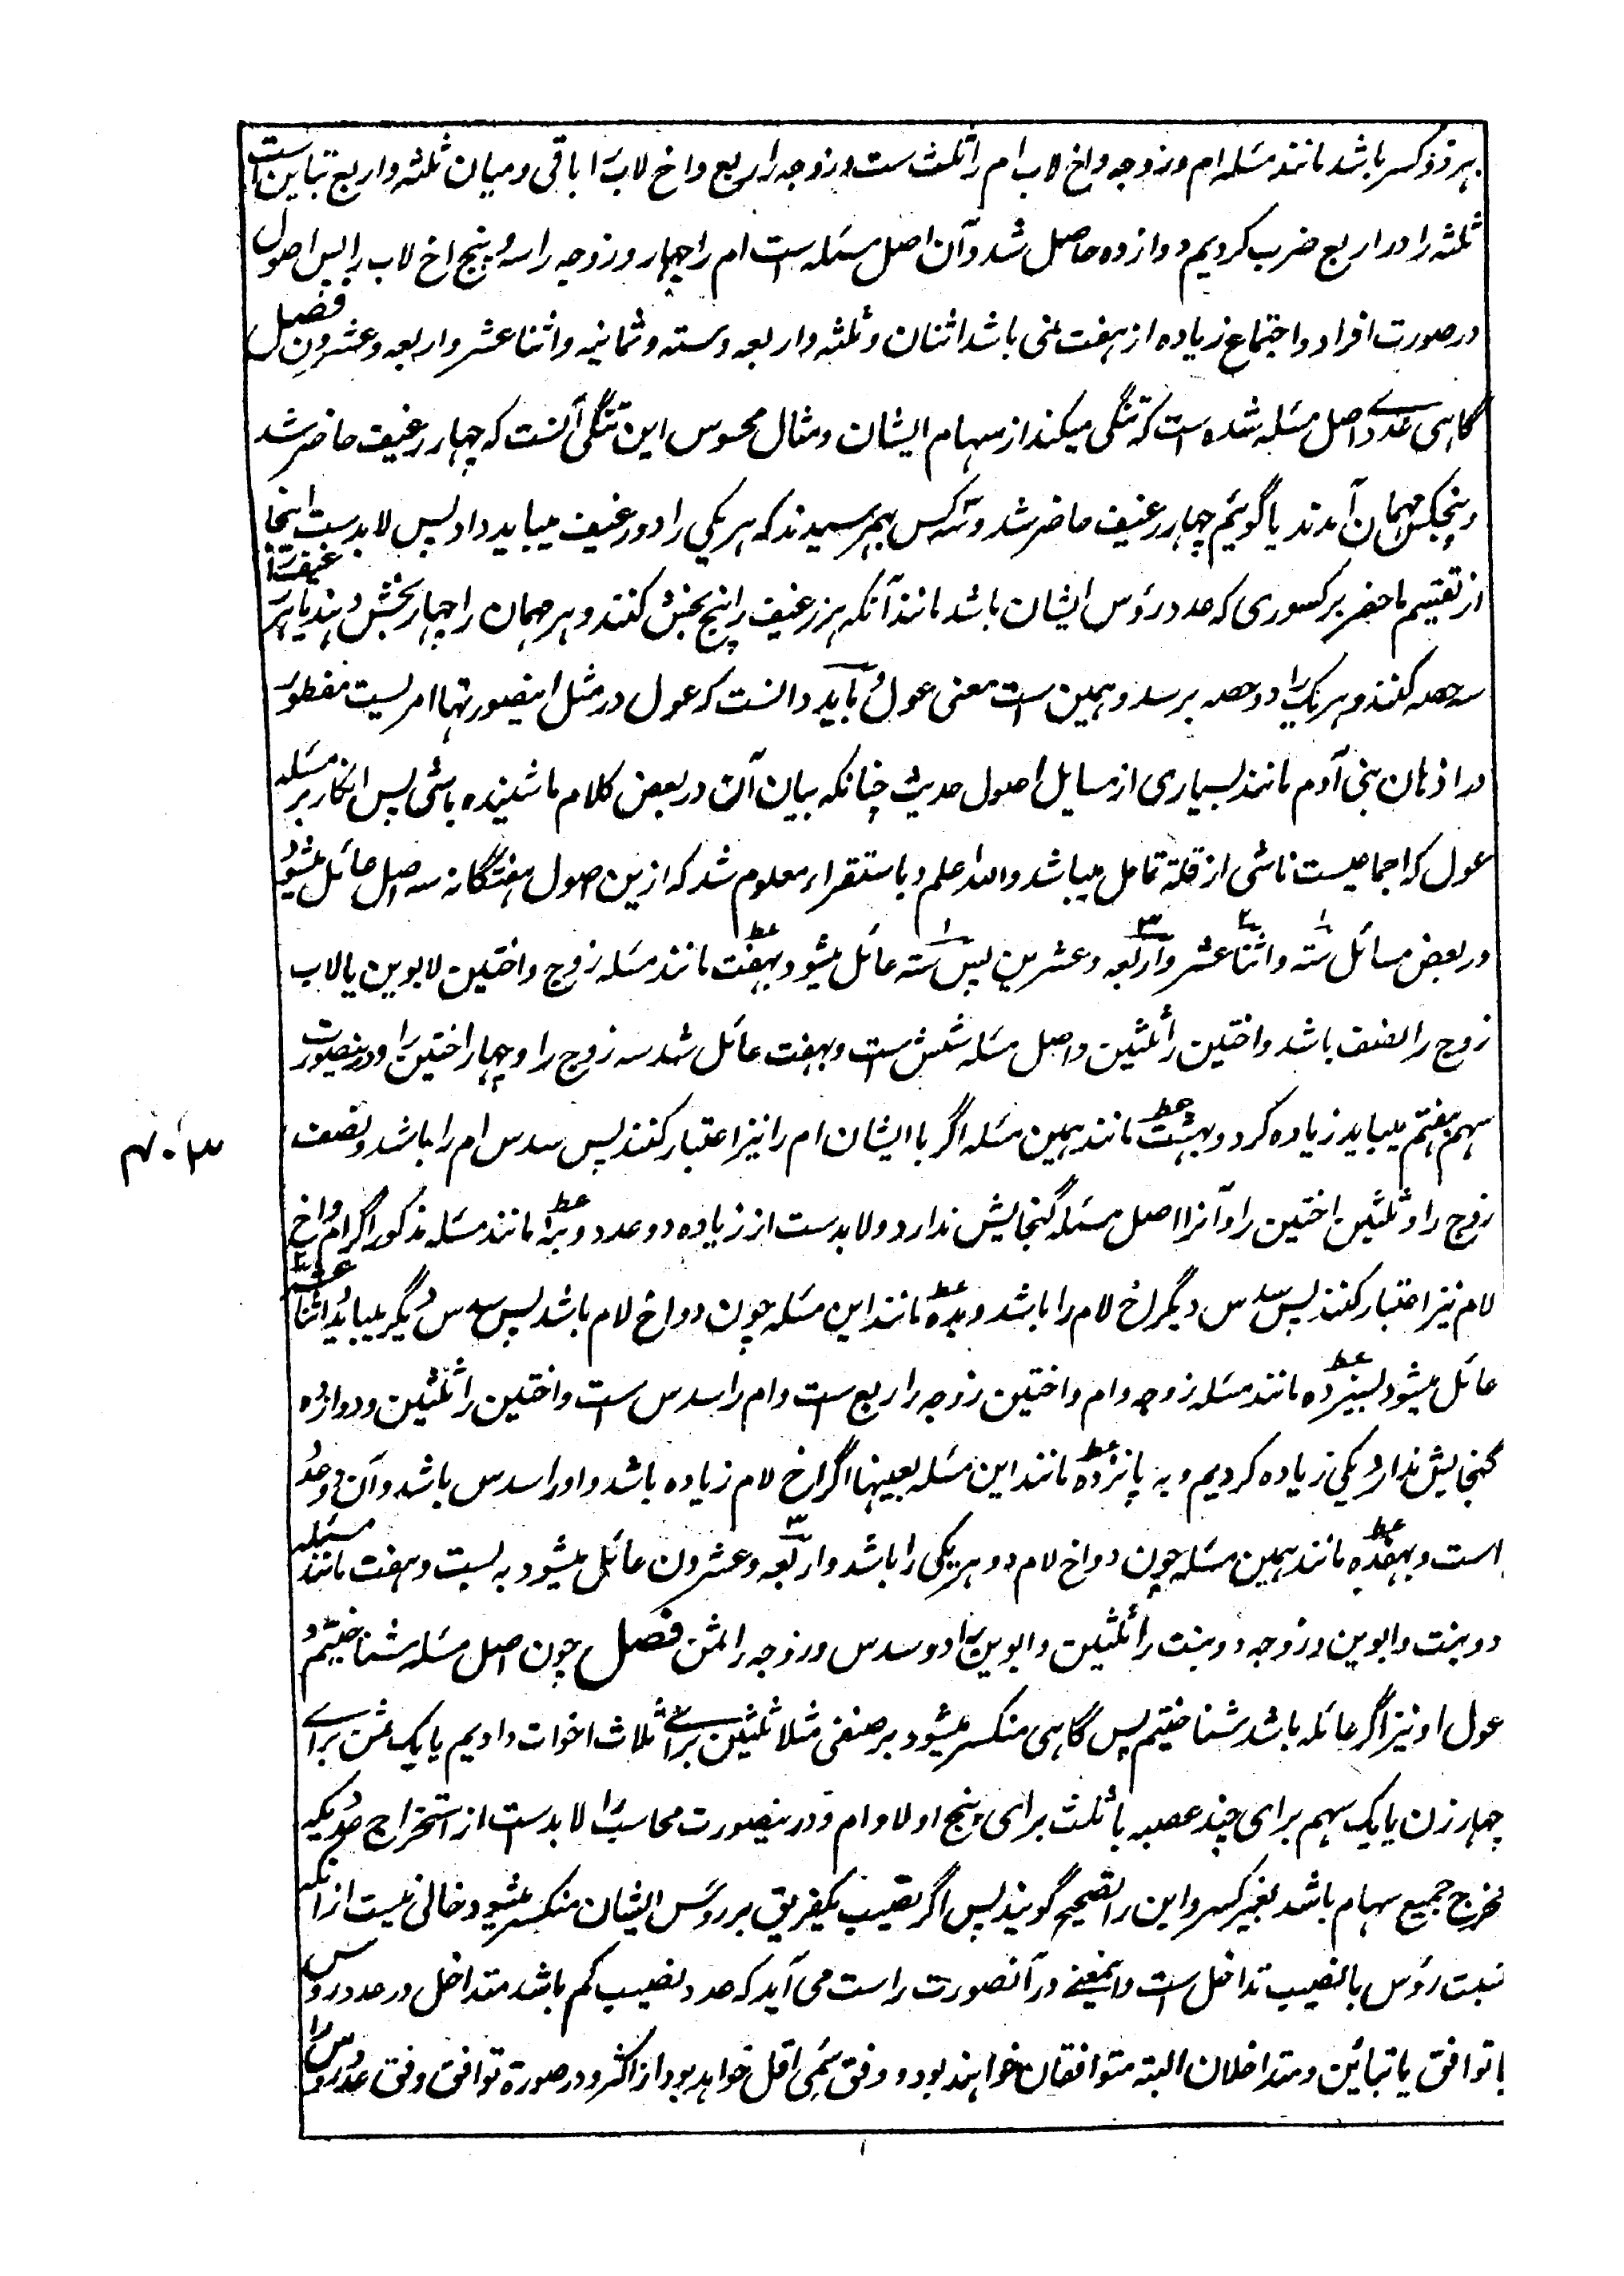 بهر دو کسر باشد مانند مسئله ام و زوجه و اخ لاب ام را ثلث ست و زوجه را ربع و اخ لاب را باقی و میان ثلثه و اربع تباین است
ثلثه را در اربع ضرب کردیم دوازده حاصل شد و آن اصل مسئله است ام را چهار و زوجه را سه و پنج اخ لاب را پس اصول
در صورت افراد و اجتماع زیاده از هفت نمی باشد اثنان و ثلثه و اربعه و سته و ثمانیه و اثنا عشر و اربعه و عشرون فصل
گاهی عددے اصل مسئله شده است که تنگی میکند از سهام ایشان و مثال محسوس این تنگی آنست که چهار رغیف حاضر شد
و پنجکس مهمان آمدند یا گوئیم چهار رغیف حاضر شد و سه کس بهم رسیدند که هر یکی را دو رغیف میباید داد پس لابدست اینجا
از تقسیم ماحضر بر کسوری که عدد رؤس ایشان باشد مانند آنکه هر رغیف را پنج بخش کنند و هر مهمان را چهار بخش دهند یا هر رغیف را
سه حصه کنند و هر یک را دو حصه برسد و همین است معنی عول و باید دانست که عول در مثل اینصورتها امریست مفطور
در اذهان بنی آدم مانند بسیاری از مسایل اصول حدیث چنانکه بیان آن در بعض کلام ما شنیده باشی پس انکار بر مسئله
عول که اجماعیست ناشی از قلة تامل میباشد والله اعلم و باستقراء معلوم شد که ازین اصول هفتگانه سه اصل عائل میشود
در بعض مسائل سته و اثنا عشر و اربعه و عشرین پس سته عائل میشود بهفت مانند مسئله زوج و اختین لابوین یا لاب
زوج را نصف باشد و اختین را ثلثین و اصل مسئله شش است و بهفت عائل شد سه زوج را و چهار اختین را و درینصورت
سهم هفتم میباید زیاده کرد و بهشت مانند همین مسئله اگر با ایشان ام را نیز اعتبار کنند پس سدس ام را باشد و نصف
زوج را و ثلثین اختین را و آنرا اصل مسئله گنجایش ندارد و لابدست از زیاده دو عدد و بنه مانند مسئله مذکور اگر ام و اخ
لام نیز اعتبار کنند پس سدس دیگر اخ لام را باشد و بده مانند این مسئله چون دو اخ لام باشد پس سدس دیگر میباید و اثنا عشر
عائل میشود بسیزده مانند مسئله زوجه و ام و اختین زوجه را ربع است و ام را سدس است و اختین را ثلثین و دوازده
گنجایش ندارد یکی زیاده کردیم و به پانزده مانند این مسئله بعینها اگر اخ لام زیاده باشد و او را سدس باشد و آن دو عدد
است و بهفده مانند همین مسئله چون دو اخ لام دو هر یکی را باشد و اربعه و عشرون عائل میشود به بست و هفت مانند مسئله
دو بنت و ابوین و زوجه دو بنت را ثلثین و ابوین را دو سدس و زوجه را ثمن فصل چون اصل مسئله شناختیم و
عول او نیز اگر عائله باشد شناختیم پس گاهی منکسر میشود بر صنفی مثلا ثلثین برای ثلاث اخوات دادیم یا یک ثمن برای
چهار زن یا یک سهم برای چند عصبه یا ثلث برای پنج اولاد ام و درینصورت محاسب را لابدست از استخراج عددیکه
مخرج جمیع سهام باشد بغیر کسر و این را تصحیح گویند پس اگر نصیب یکفریق بر روس ایشان منکسر میشود خالی نیست از آنکه
نسبت رؤس با نصیب تداخل است و اینمعنے در آنصورت راست می آید که عدد نصیب کم باشد متداخل در عدد روس
یا توافق یا تبائین و متداخلان البته متوافقان خواهند بود و وفق سمی اقل خواهد بود از اکثر و در صورة توافق وفق عدد روس را